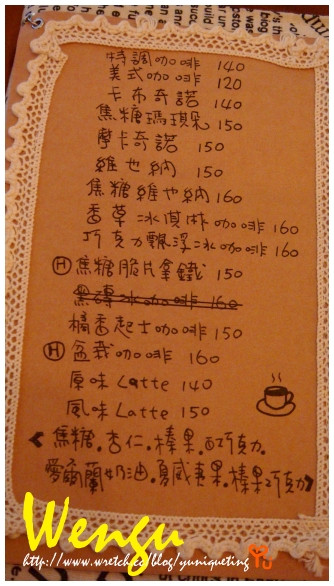 特調咖啡 140
美式咖啡 120
卡布奇諾 140
焦糖瑪琪朵 150
摩卡奇諾 150
維也納 150
焦糖維也納 160
香草冰淇淋咖啡 160
巧克力飄浮冰咖啡 160
Ⓗ 焦糖脆片拿鐵 150
黑磚冰咖啡 160
橘香起士咖啡 150
Ⓗ 盆栽咖啡 160
原味 Latte 140
風味 Latte 150
<焦糖.杏仁.榛果.白巧克力.
愛爾蘭奶油.夏威夷果.榛果巧克力>
Wengu
http://www.wretch.cc/blog/yuniqueting